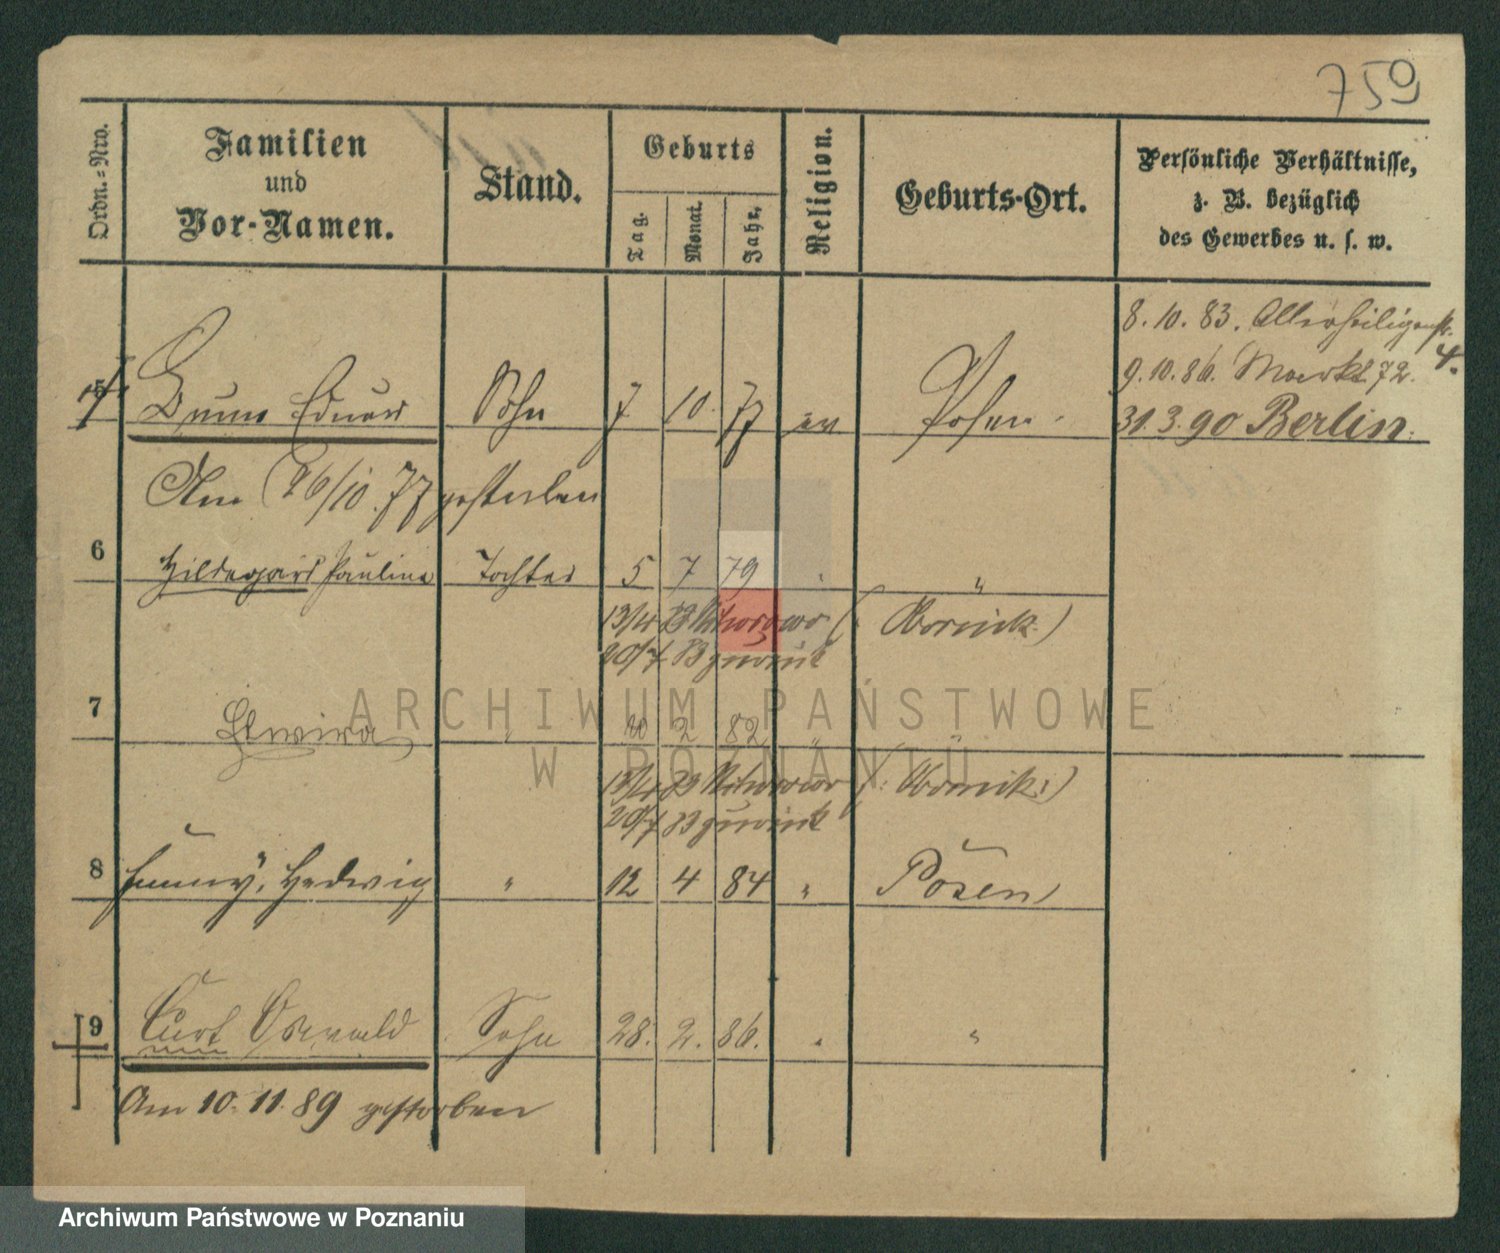 759
Ordn.=Nro.
Familien
und
Vor-Namen.
Stand.
Geburts
Tag.
Monat.
Jahr.
Religion.
Geburts-Ort.
Persönliche Verhältnisse,
z. B. bezüglich
des Gewerbes u. s. w.
8. 10. 83. Allerheiligenstr. 4.
9. 10. 86. Markt 72.
5 Bruno Eduard Sohn 7 10. 77 ev Posen. 31. 3. 90 Berlin.
Am 26/10. 77 gestorben
6 Hildegard Pauline Tochter 5 7 79 "
(Obornik.)
20/7
7 Elwira " 20 2 82 " "
(Obornik.)
20/7
8 Fanny, Hedwig " 12 4 84 " Posen
9 Curt Oswald Sohn 28. 2. 86. " "
Am 10. 11. 89 gestorben
ARCHIWUM PAŃSTWOWE
W POZNANIU
Archiwum Państwowe w Poznaniu